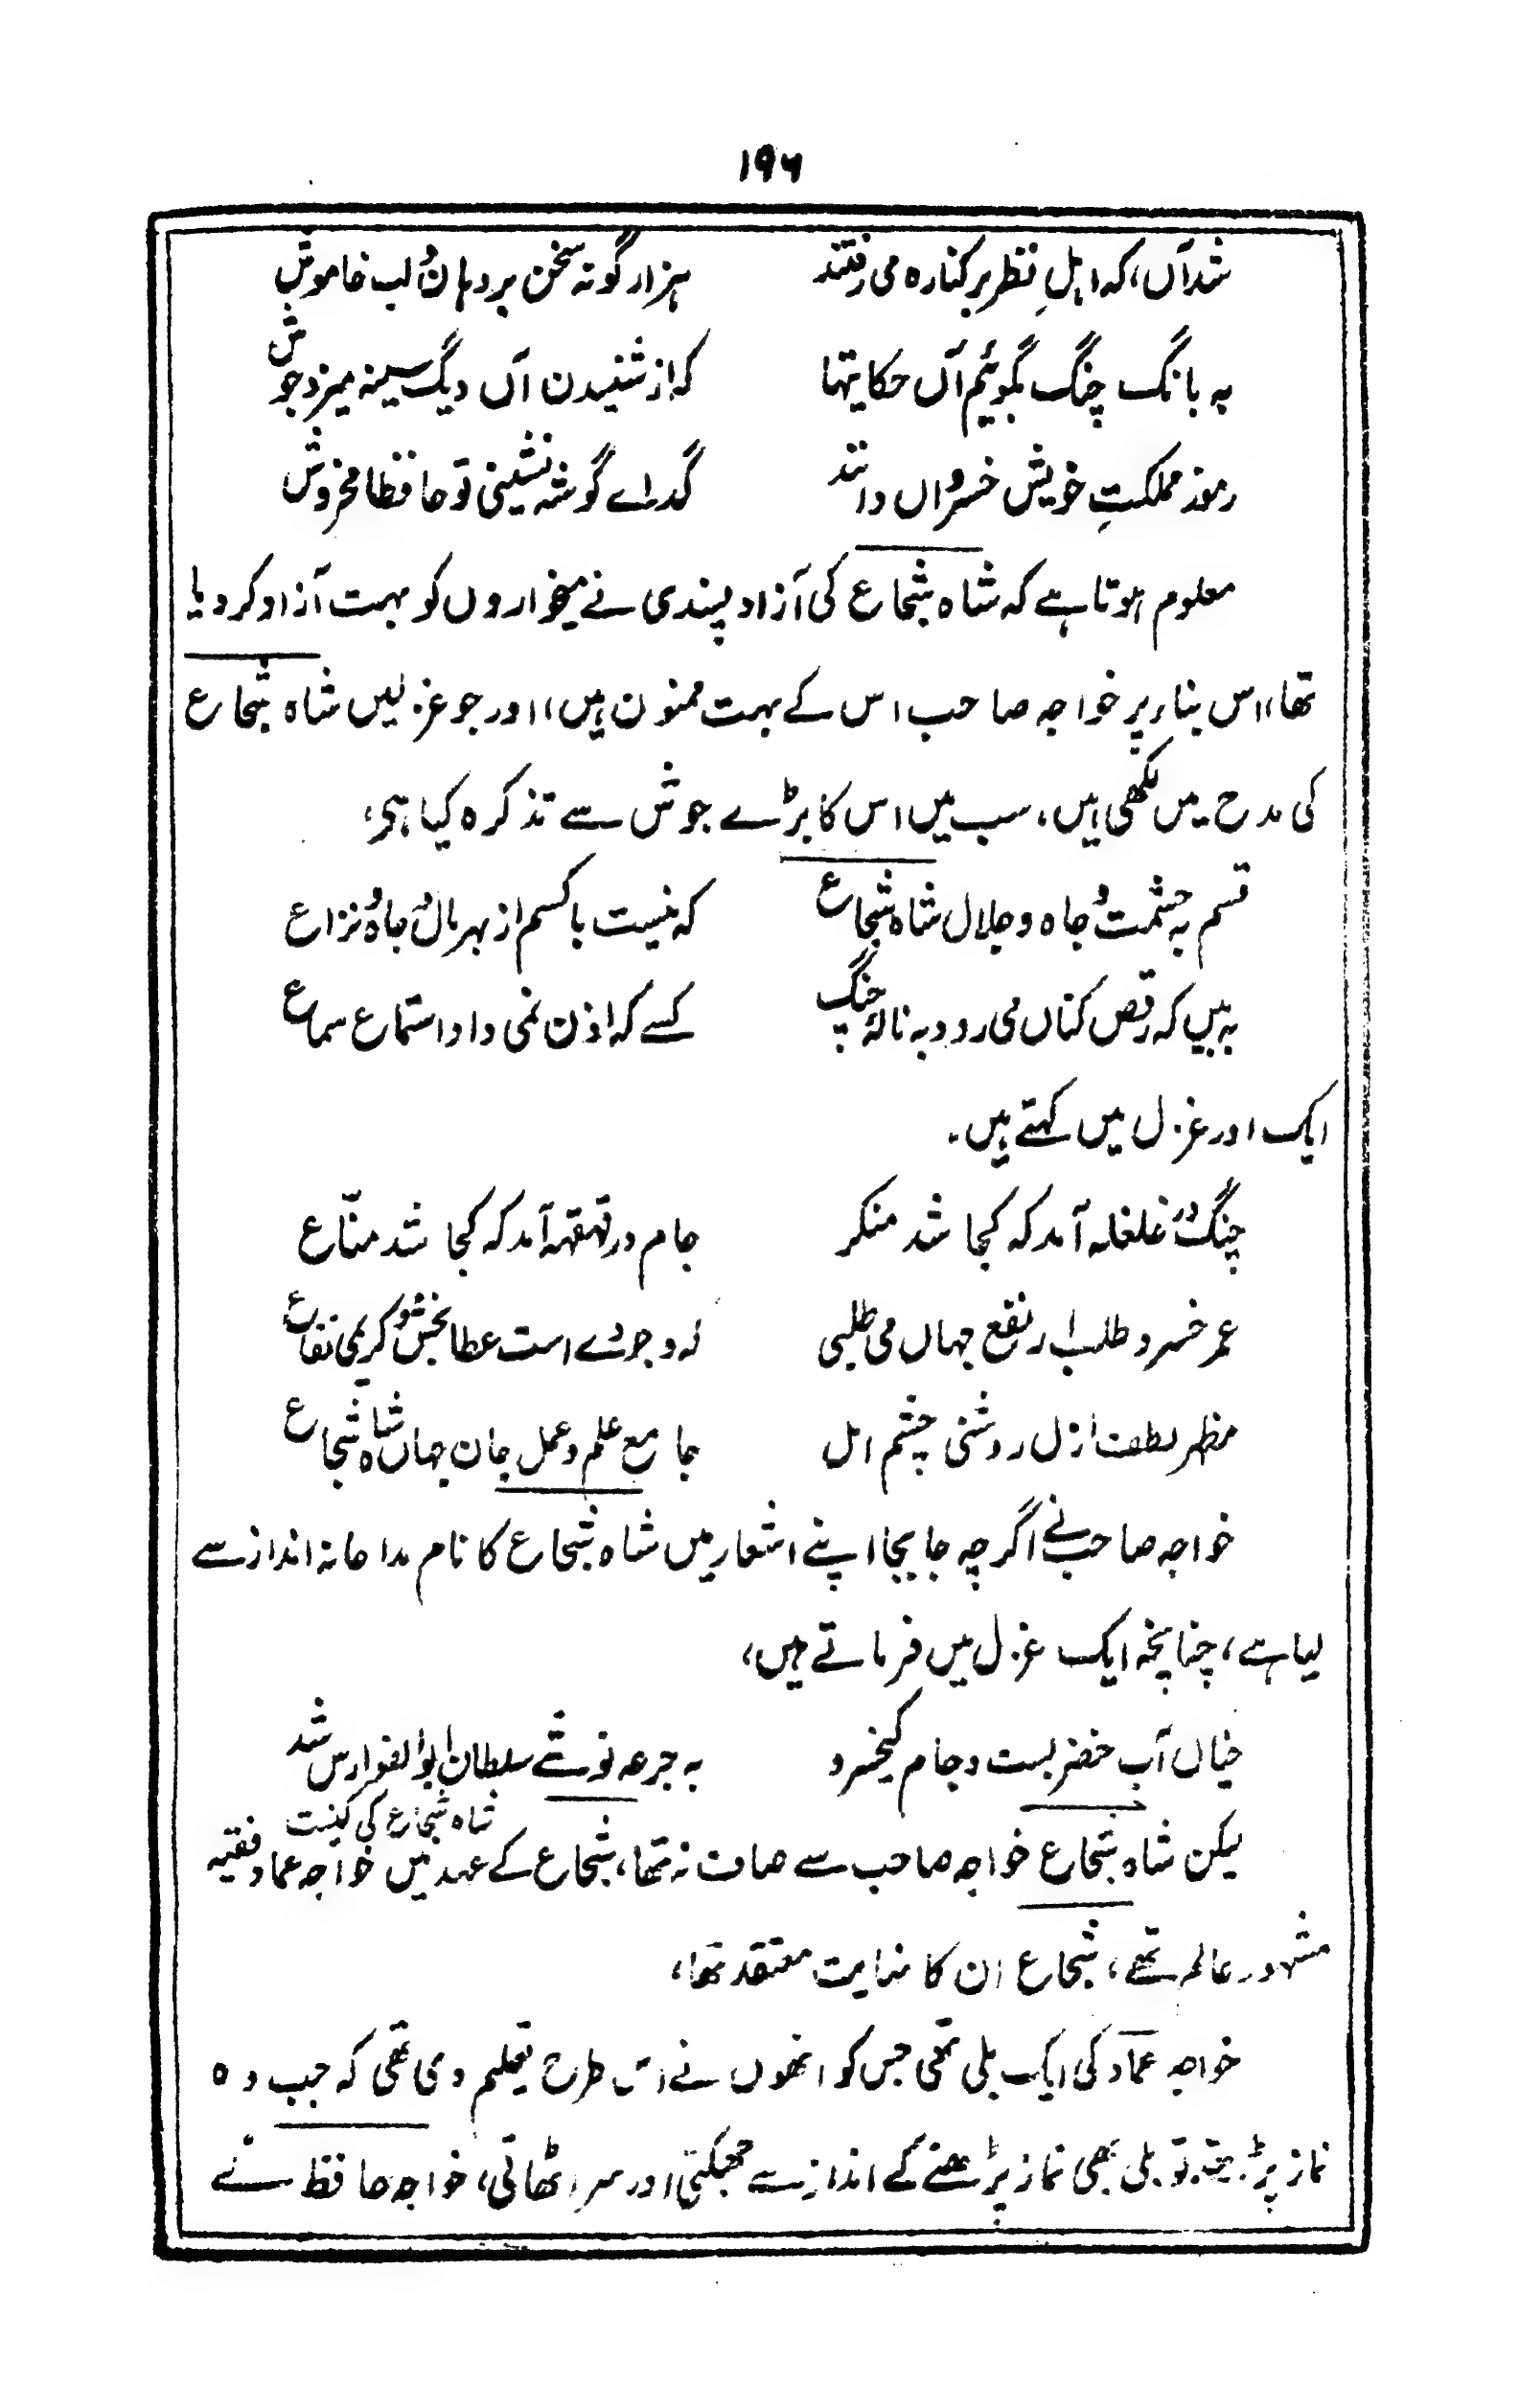 ۱۹۶
شد آں، کہ اہلِ نظر بر کنارہ می رفتند ہزار گونہ سخن بر دہان و لب خاموش
بہ بانگ چنگ بگوئیم آں حکایتہا کہ از شنیدن آں دیگ سینہ میزد جوش
رموز مملکتِ خویش خسرواں دانند گداے گوشہ نشینی تو حافظا مخروش
معلوم ہوتا ہے کہ شاہ شجاع کی آزاد پسندی نے میخواروں کو بہت آزاد کر دیا
تھا، اس بنار پر خواجہ صاحب اس کے بہت ممنون ہیں، اور جو غزلیں شاہ شجاع
کی مدح میں لکھی ہیں، سب میں اس کا بڑے جوش سے تذکرہ کیا ہی،
قسم بہ حشمت و جاہ و جلال شاہ شجاع کہ نیست با کسم از بہر مال و جاہ نزاع
بہ بیں کہ رقص کناں می رود بہ نالۂ چنگ کسے کہ اذن نمی داد استماع سماع
ایک اور غزل میں کہتے ہیں۔
چنگ در غلغلہ آمد کہ کجا شد منکر جام در قہقہہ آمد کہ کجا شد منّاع
عمر خسرو طلب ار نفع جہاں می طلبی کہ وجودے است عطا بخش و کریمی نفاع
مظہر لطف ازل روشنی چشم امل جامع علم و عمل جان جہاں شاہ شجاع
خواجہ صاحب نے اگرچہ جا بجا اپنے اشعار میں شاہ شجاع کا نام مداحانہ انداز سے
لیا ہے، چنانچہ ایک غزل میں فرماتے ہیں،
خیال آب خضر بست و جام کیخسرو بہ جرعہ نوشے سلطان ابو الفوارس شد
شاہ شجاع کی کنیت
لیکن شاہ شجاع خواجہ صاحب سے صاف نہ تھا، شجاع کے عہد میں خواجہ عماد فقیہ
مشہور عالم تھے، شجاع ان کا نہایت معتقد تھا،
خواجہ عماد کی ایک بلی تھی جس کو انھوں نے اس طرح تعلیم دی تھی کہ جب وہ
نماز پڑہتے تو بلی بھی نماز پڑھنے کے انداز سے جھکتی اور سر اٹھاتی، خواجہ حافظ نے